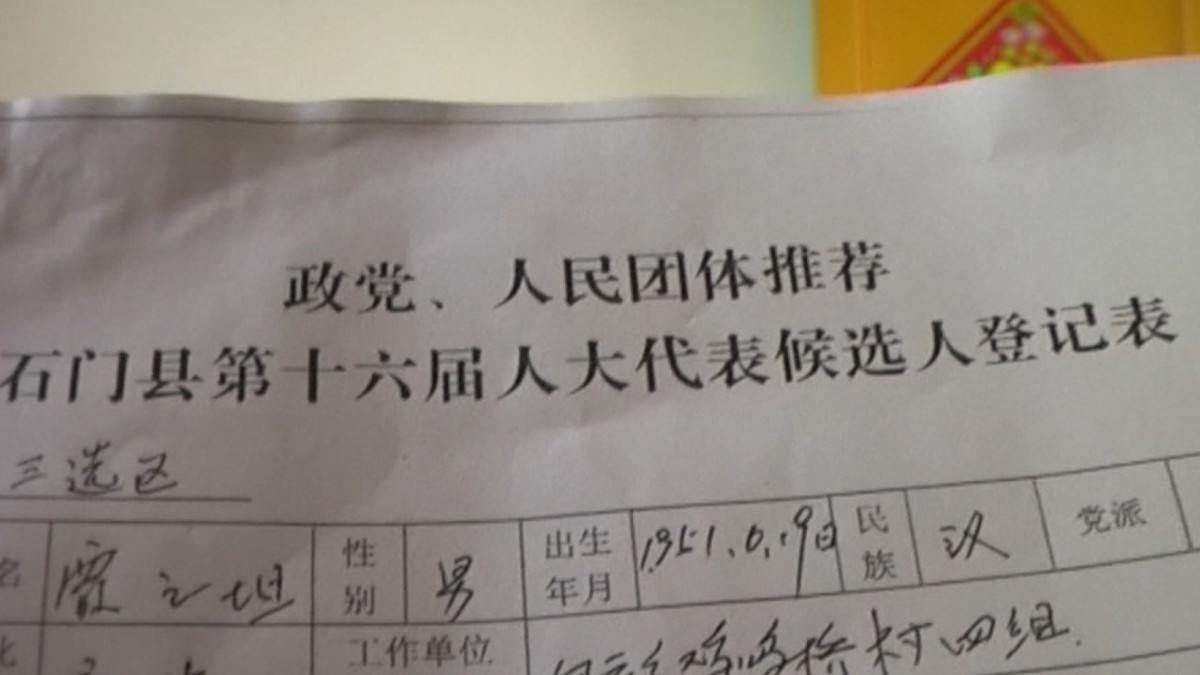 政党、人民团体推荐
石门县第十六届人大代表候选人登记表
三选区
名 覃之坦 性别 男 出生年月 民族 汉 党派
工作单位 鸡鸣桥村四组